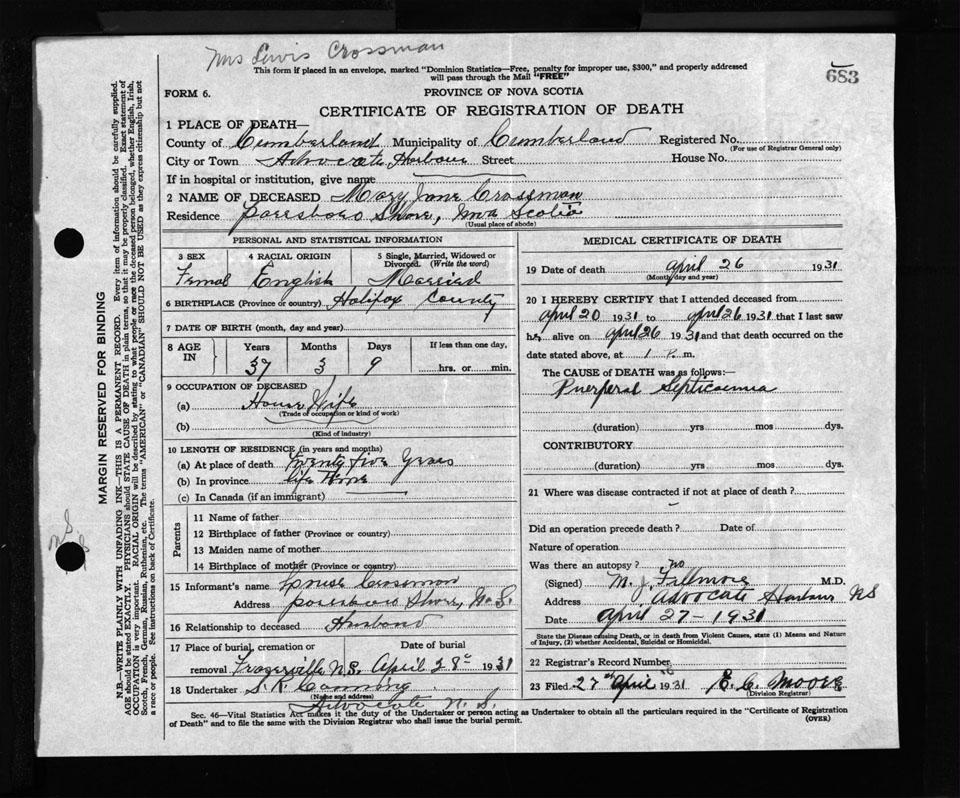 Mrs Lewis Crossman
683
This form if placed in an envelope, marked "Dominion Statistics—Free, penalty for improper use, $300," and properly addressed
will pass through the Mail "FREE"
FORM 6.
PROVINCE OF NOVA SCOTIA
CERTIFICATE OF REGISTRATION OF DEATH
1 PLACE OF DEATH—
County of Cumberland Municipality of Cumberland Registered No.
(For use of Registrar General only)
City or Town Advocate Harbour Street House No.
If in hospital or institution, give name
2 NAME OF DECEASED Mary Jane Crossman
Residence Parrsboro Shore, Nova Scotia
(Usual place of abode)
PERSONAL AND STATISTICAL INFORMATION
3 SEX 4 RACIAL ORIGIN 5 Single, Married, Widowed or Divorced. (Write the word)
Femal English Married
6 BIRTHPLACE (Province or country) Halifax County
7 DATE OF BIRTH (month, day and year)
8 AGE IN Years Months Days If less than one day,
37 3 9 hrs. or min.
9 OCCUPATION OF DECEASED
(a) House Wife
(Trade of occupation or kind of work)
(b)
(Kind of industry)
10 LENGTH OF RESIDENCE (in years and months)
(a) At place of death Twenty five Years
(b) In province life
(c) In Canada (if an immigrant)
Parents
11 Name of father
12 Birthplace of father (Province or country)
13 Maiden name of mother
14 Birthplace of mother (Province or country)
15 Informant's name Crossman
Address Parrsboro Shore, N.S.
16 Relationship to deceased Husband
17 Place of burial, cremation or Date of burial
removal Fraserville N.S. April 28th 1931
18 Undertaker
(Name and address)
Advocate N.S.
MEDICAL CERTIFICATE OF DEATH
19 Date of death April 26 1931
(Month, day and year)
20 I HEREBY CERTIFY that I attended deceased from
April 20 1931 to April 26 1931 that I last saw
her alive on April 26 1931 and that death occurred on the
date stated above, at 1 P. m.
The CAUSE of DEATH was as follows:—
Puerperal Septicaemia
(duration) yrs mos dys.
CONTRIBUTORY
(duration) yrs mos dys.
21 Where was disease contracted if not at place of death?
Did an operation precede death? Date of
Nature of operation
Was there an autopsy? no
(Signed) M. J. Fillmore M.D.
Address Advocate Harbour NS
Date April 27-1931
State the Disease causing Death, or in death from Violent Causes, state (1) Means and Nature
of Injury, (2) whether Accidental, Suicidal or Homicidal.
22 Registrar's Record Number
23 Filed 27th April 1931 E. C. Moore
(Division Registrar)
Sec. 46—Vital Statistics Act makes it the duty of the Undertaker or person acting as Undertaker to obtain all the particulars required in the "Certificate of Registration
of Death" and to file the same with the Division Registrar who shall issue the burial permit.
(OVER)
MARGIN RESERVED FOR BINDING
N.B.—WRITE PLAINLY WITH UNFADING INK—THIS IS A PERMANENT RECORD. Every item of information should be carefully supplied.
AGE should be stated EXACTLY. PHYSICIANS should STATE CAUSE OF DEATH in plain terms, so that it may be properly classified. Exact statement of
OCCUPATION is very important. RACIAL ORIGIN will be described by stating to what people or race the deceased person belonged, whether English, Irish,
Scotch, French, German, Russian, Ruthenian, etc. The terms "AMERICAN" or "CANADIAN" SHOULD NOT BE USED as they express citizenship but not
a race or people. See instructions on back of Certificate.